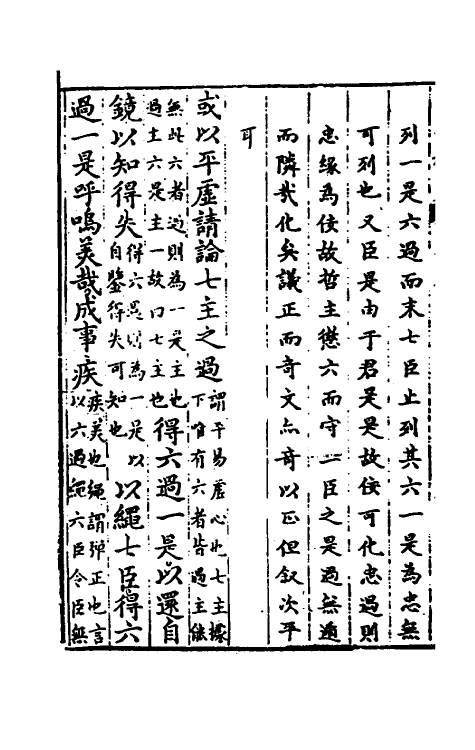 列一是六過而末七臣止列其六一是為忠無
可列也又臣是由于君是是故佞可化忠過則
忠緣為佞故哲主懲六而守一臣之是過無遁
而隣哉化矣議正而奇文亦奇以正但叙次平
耳
或以平虛請論七主之過謂平易虛心也七主據下唯有六者皆過主能
無此六者過則為一是主也過主六是主一故曰七主也得六過一是以還自
鏡以知得失得六過則為一是以自鑒得失可知也以繩七臣得六
過一是呼嗚美哉成事疾疾美也繩謂彈正也言以六過繩六臣令臣無